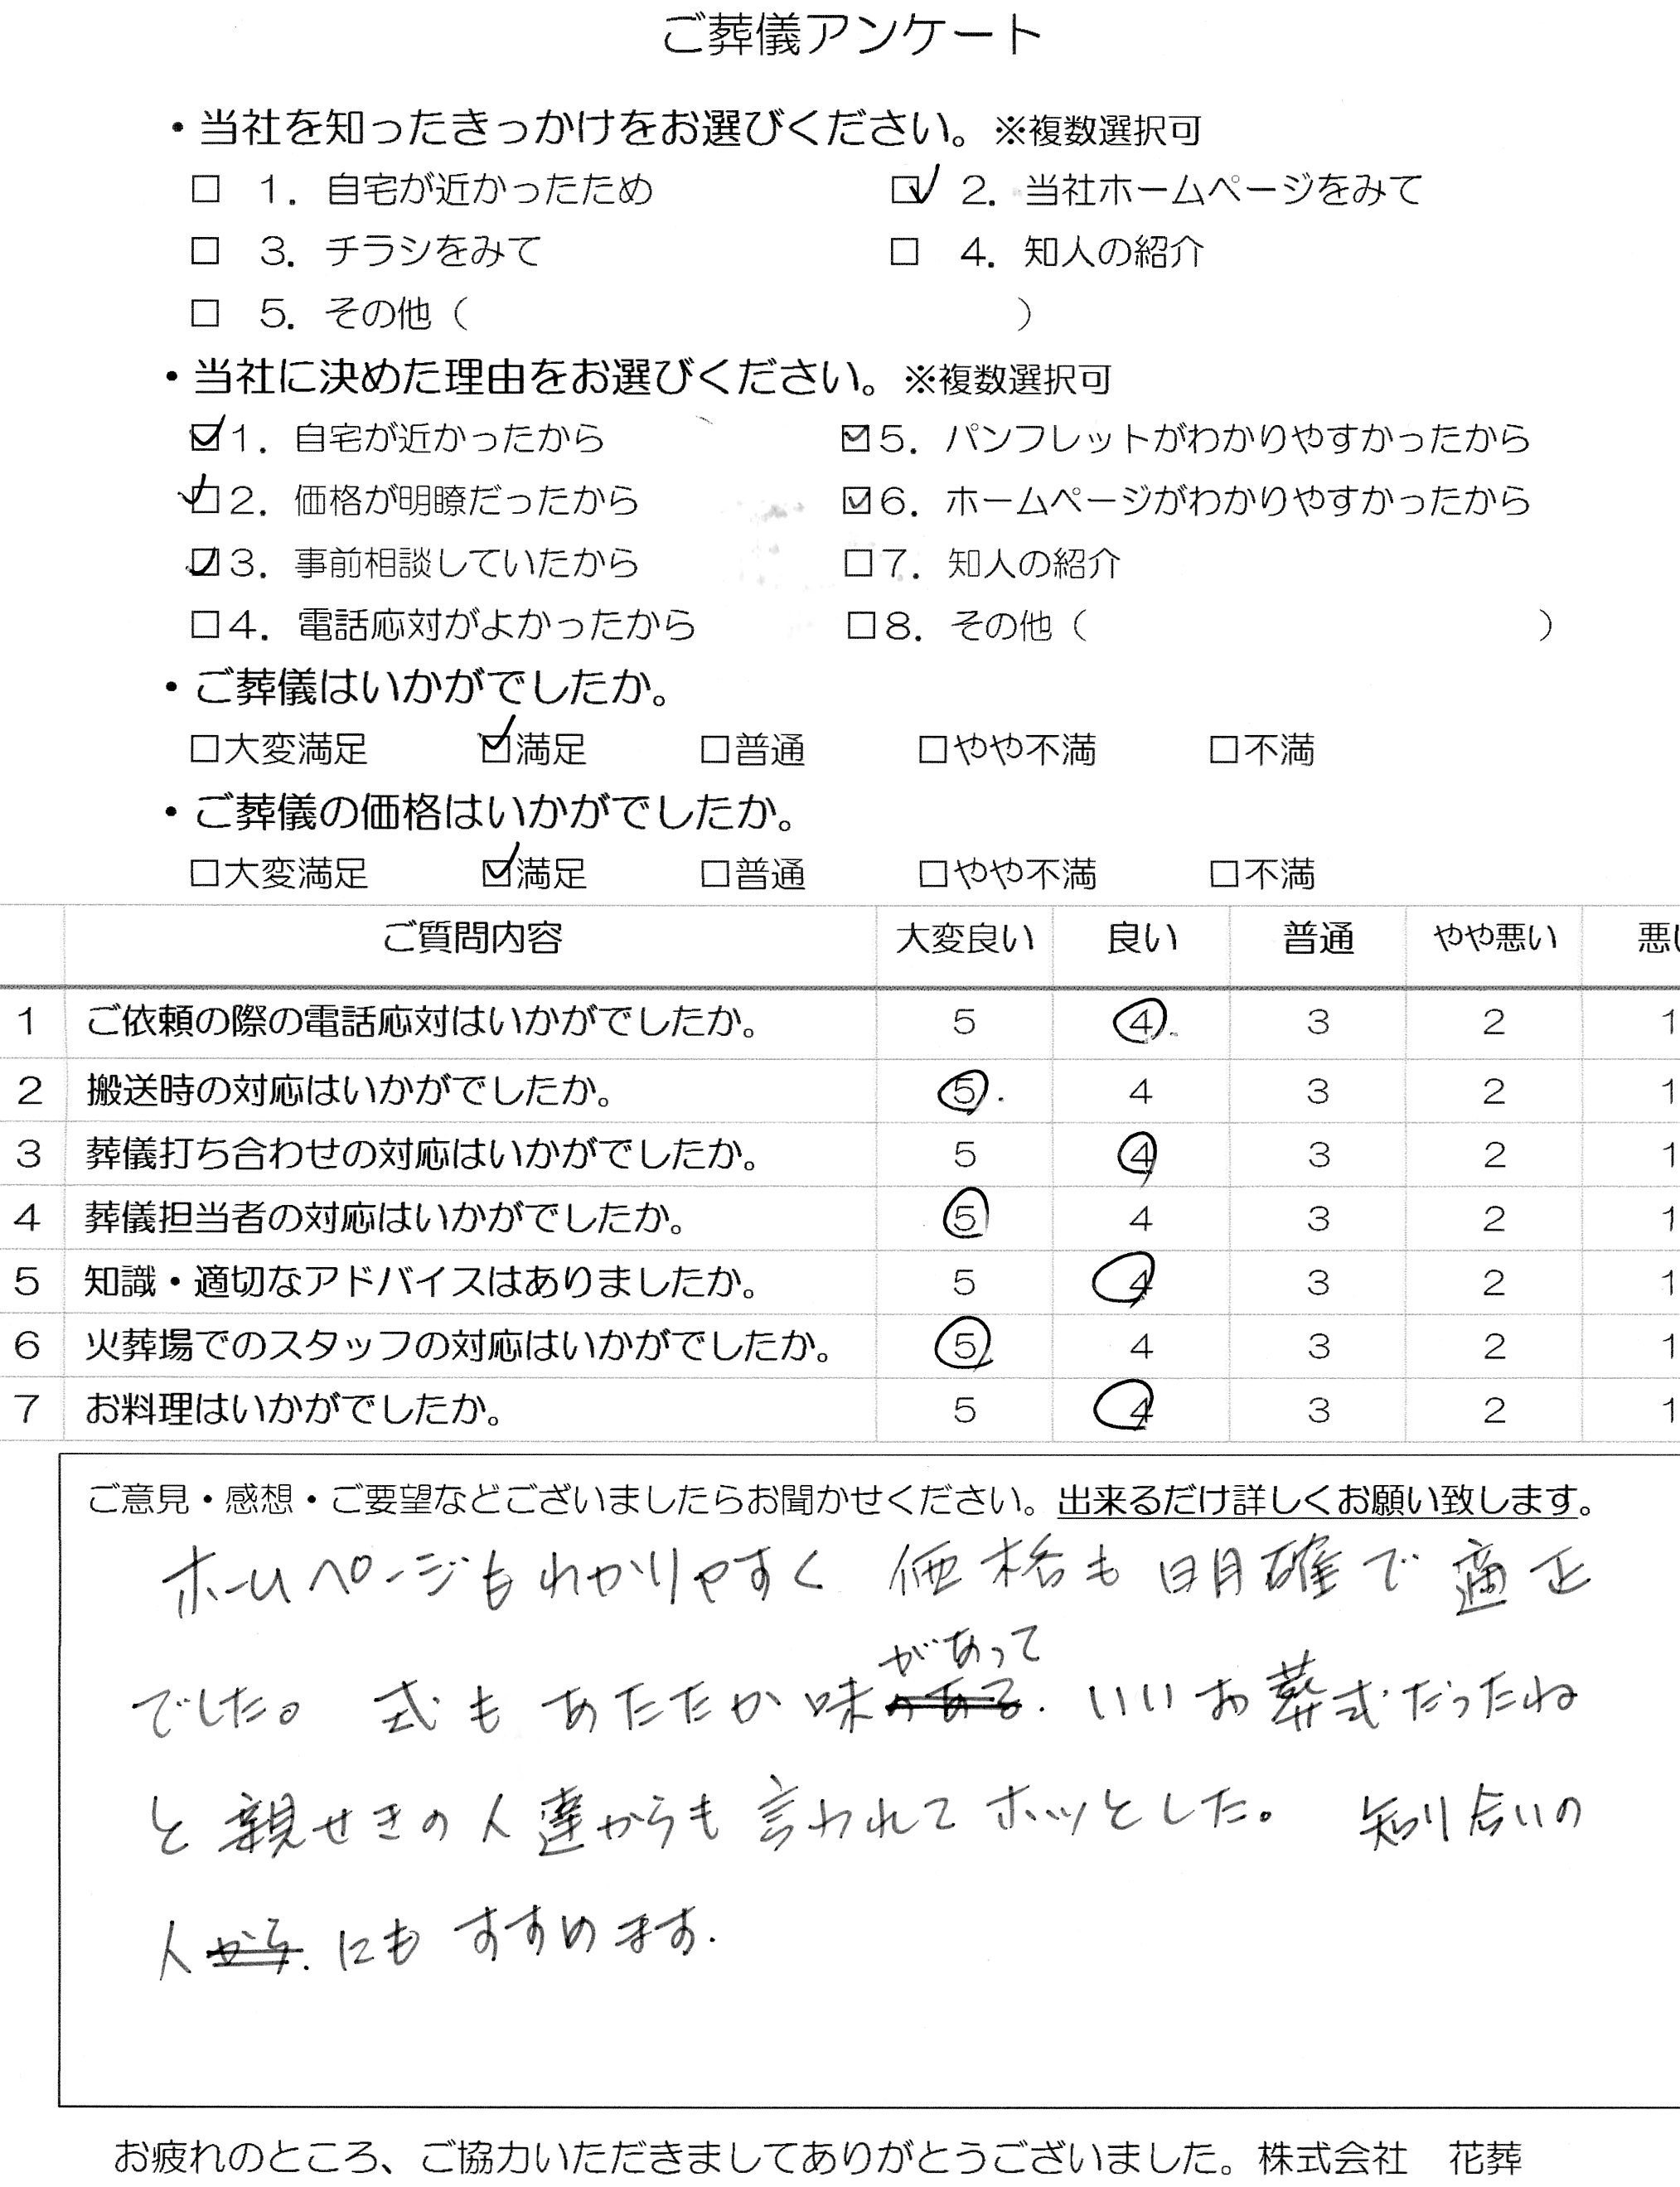 ご葬儀アンケート
・当社を知ったきっかけをお選びください。※複数選択可
□ 1．自宅が近かったため ☑ 2．当社ホームページをみて
□ 3．チラシをみて □ 4．知人の紹介
□ 5．その他（ ）
・当社に決めた理由をお選びください。※複数選択可
☑1．自宅が近かったから ☑5．パンフレットがわかりやすかったから
☑2．価格が明瞭だったから ☑6．ホームページがわかりやすかったから
☑3．事前相談していたから □7．知人の紹介
□4．電話応対がよかったから □8．その他（ ）
・ご葬儀はいかがでしたか。
□大変満足 ☑満足 □普通 □やや不満 □不満
・ご葬儀の価格はいかがでしたか。
□大変満足 ☑満足 □普通 □やや不満 □不満
ご質問内容 大変良い 良い 普通 やや悪い
1 ご依頼の際の電話応対はいかがでしたか。 5 4 3 2 1
2 搬送時の対応はいかがでしたか。 5 4 3 2 1
3 葬儀打ち合わせの対応はいかがでしたか。 5 4 3 2 1
4 葬儀担当者の対応はいかがでしたか。 5 4 3 2 1
5 知識・適切なアドバイスはありましたか。 5 4 3 2 1
6 火葬場でのスタッフの対応はいかがでしたか。 5 4 3 2 1
7 お料理はいかがでしたか。 5 4 3 2 1
ご意見・感想・ご要望などございましたらお聞かせください。出来るだけ詳しくお願い致します。
ホームページもわかりやすく 価格も明確で適正
でした。 式もあたたか味があって いいお葬式だったね
と親せきの人達からも言われてホッとした。 知り合いの
人にもすすめます.
お疲れのところ、ご協力いただきましてありがとうございました。株式会社 花葬